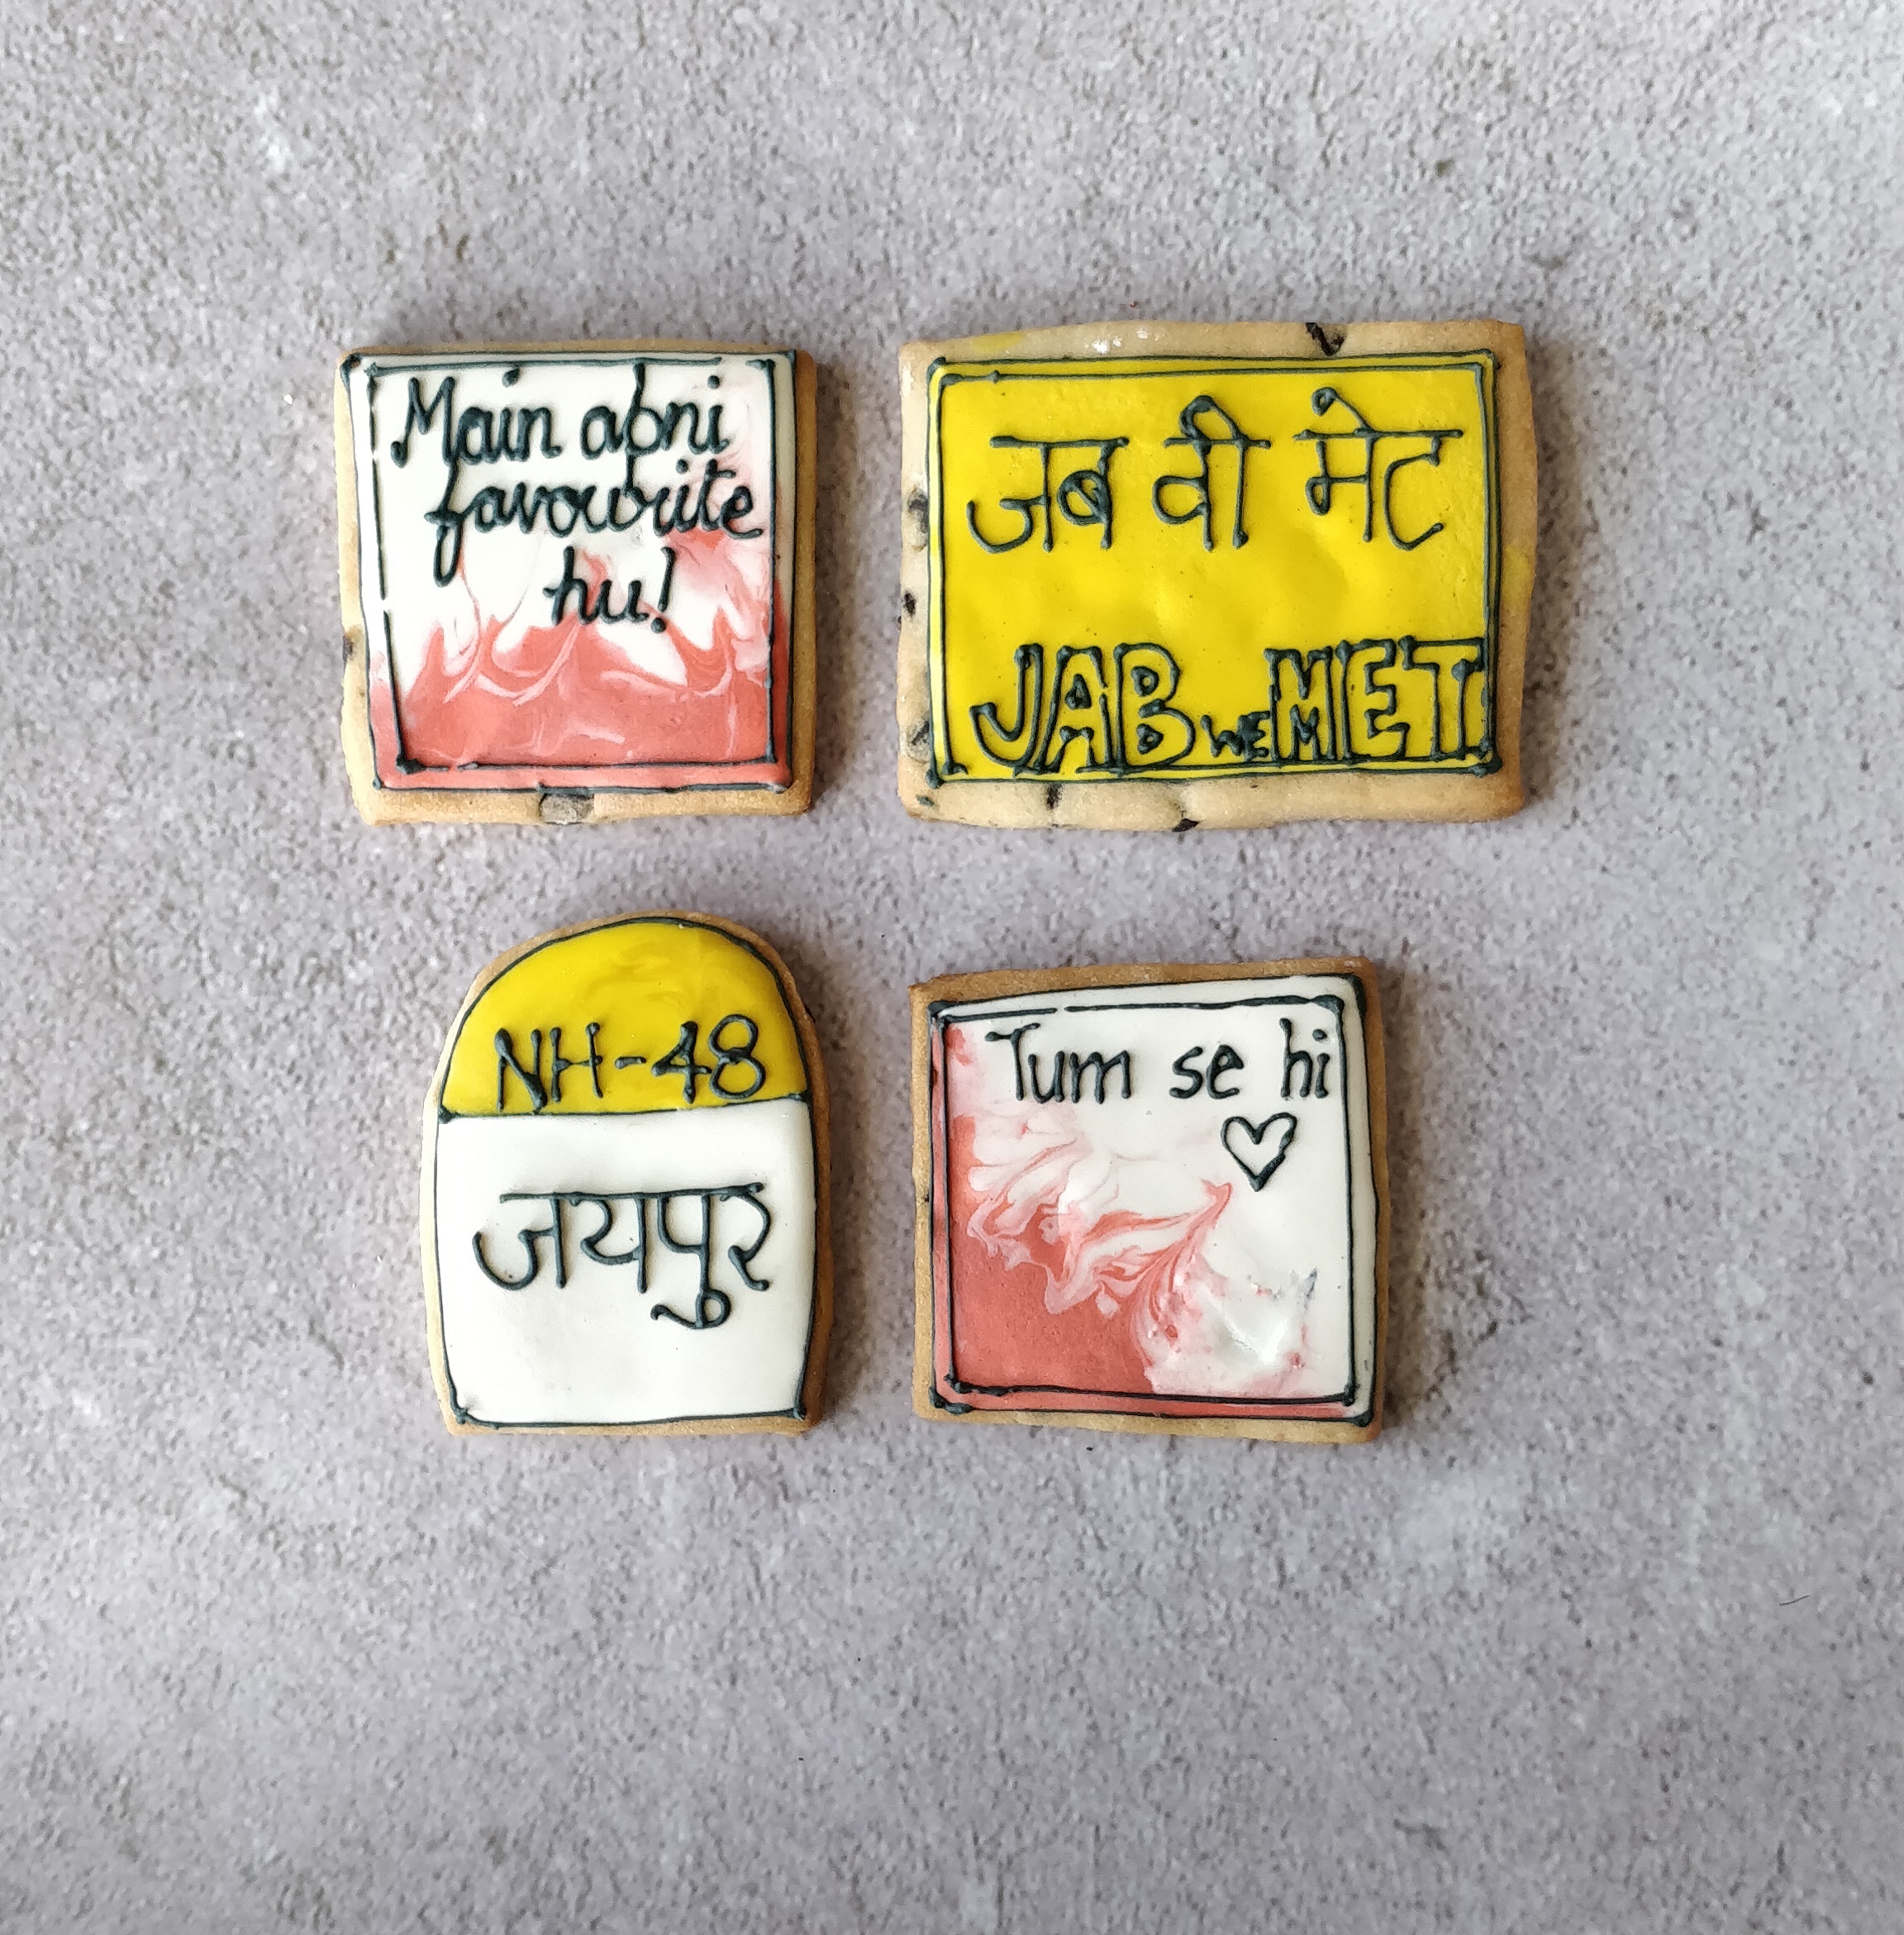 Main apni
favourite
hu!
जब वी मेट
JAB WE MET
NH-48
जयपुर
Tum se hi